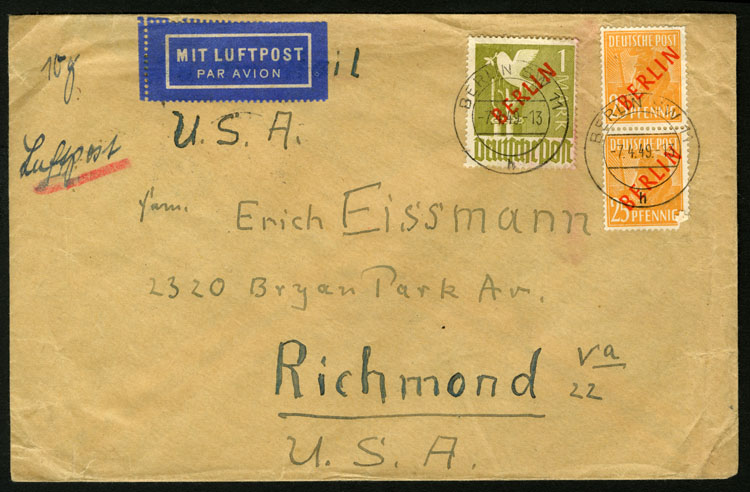 10 g.
MIT LUFTPOST
PAR AVION
il
Luftpost
U. S. A.
1
MARK
BERLIN
Deutsche Post
BERLIN
11
-7.4.49.-13
h
DEUTSCHE POST
BERLIN
DEUTSCHE POST
BERLIN
25 PFENNIG
BERLIN
11
-7.4.49.
h
Fam. Erich Eissmann
2320 Bryan Park Av.
Richmond Va
22
U. S. A.